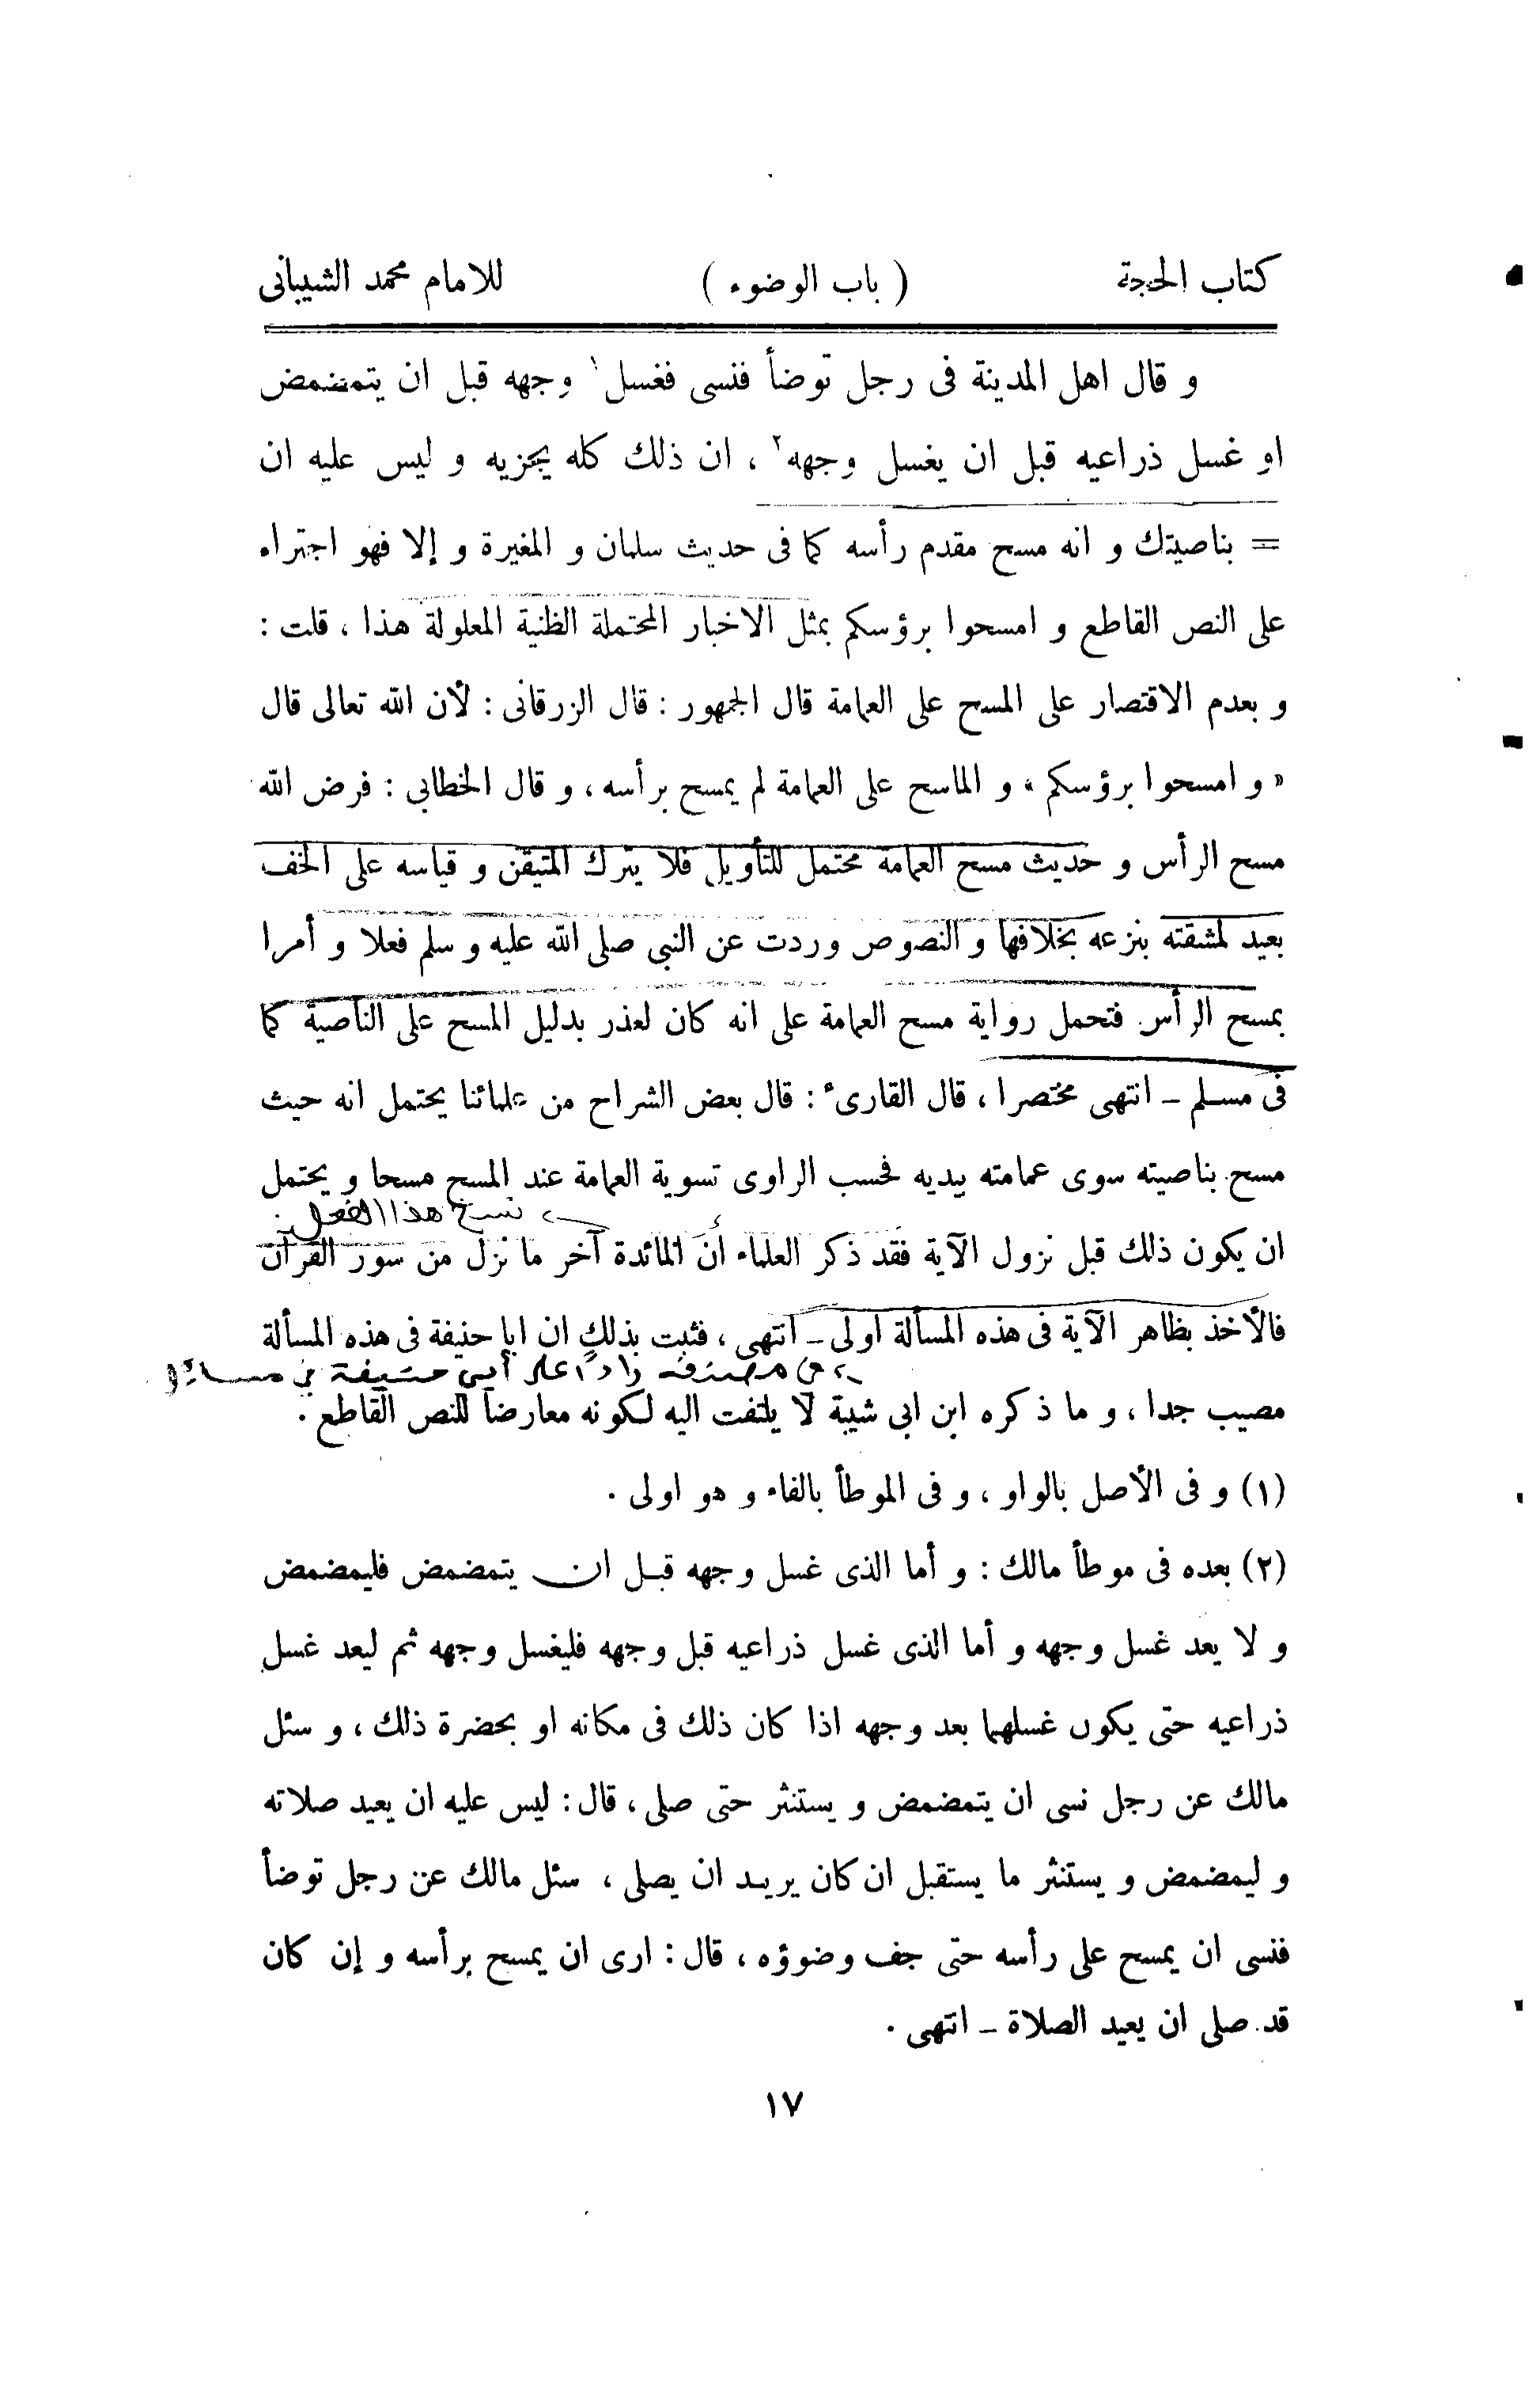 كتاب الحجة ( باب الوضوء ) للامام محمد الشيبانى
و قال اهل المدينة فى رجل توضأ فنسى فغسل١ وجهه قبل ان يتمضمض
او غسل ذراعيه قبل ان يغسل وجهه٢ ، ان ذلك كله يجزيه و ليس عليه ان
= بناصيتك و انه مسح مقدم رأسه كما فى حديث سلمان و المغيرة و إلا فهو اجتراء
على النص القاطع و امسحوا برؤسكم بمثل الاخبار المحتملة الظنية المعلولة هذا ، قلت :
و بعدم الاقتصار على المسح على العمامة قال الجمهور : قال الزرقانى : لأن الله تعالى قال
« و امسحوا برؤسكم » و الماسح على العمامة لم يمسح برأسه ، و قال الخطابى : فرض الله
مسح الرأس و حديث مسح العمامة محتمل للتأويل فلا يترك المتيقن و قياسه على الخف
بعيد لمشقته بنزعه بخلافها و النصوص وردت عن النبى صلى الله عليه و سلم فعلا و أمرا
بمسح الرأس فتحمل رواية مسح العمامة على انه كان لعذر بدليل المسح على الناصية كما
فى مسلم ـ انتهى مختصرا ، قال القارىء : قال بعض الشراح من علمائنا يحتمل انه حيث
مسح بناصيته سوى عمامته بيديه فحسب الراوى تسوية العمامة عند المسح مسحا و يحتمل
نسخ هذا الفعل
ان يكون ذلك قبل نزول الآية فقد ذكر العلماء أن المائدة آخر ما نزل من سور القرآن
فالأخذ بظاهر الآية فى هذه المسألة اولى ـ انتهى ، فثبت بذلك ان ابا حنيفة فى هذه المسألة
مصنفه رادا على أبي حنيفة
مصيب جدا ، و ما ذكره ابن ابى شيبة لا يلتفت اليه لكونه معارضا للنص القاطع .
(١) و فى الأصل بالواو ، و فى الموطأ بالفاء و هو اولى .
(٢) بعده فى موطأ مالك : و أما الذى غسل وجهه قبل ان يتمضمض فليمضمض
و لا يعد غسل وجهه و أما الذى غسل ذراعيه قبل وجهه فليغسل وجهه ثم ليعد غسل
ذراعيه حتى يكون غسلهما بعد وجهه اذا كان ذلك فى مكانه او بحضرة ذلك ، و سئل
مالك عن رجل نسى ان يتمضمض و يستنثر حتى صلى ، قال : ليس عليه ان يعيد صلاته
و ليمضمض و يستنثر ما يستقبل ان كان يريد ان يصلى ، سئل مالك عن رجل توضأ
فنسى ان يمسح على رأسه حتى جف وضوؤه ، قال : ارى ان يمسح برأسه و إن كان
قد صلى ان يعيد الصلاة ـ انتهى .
١٧